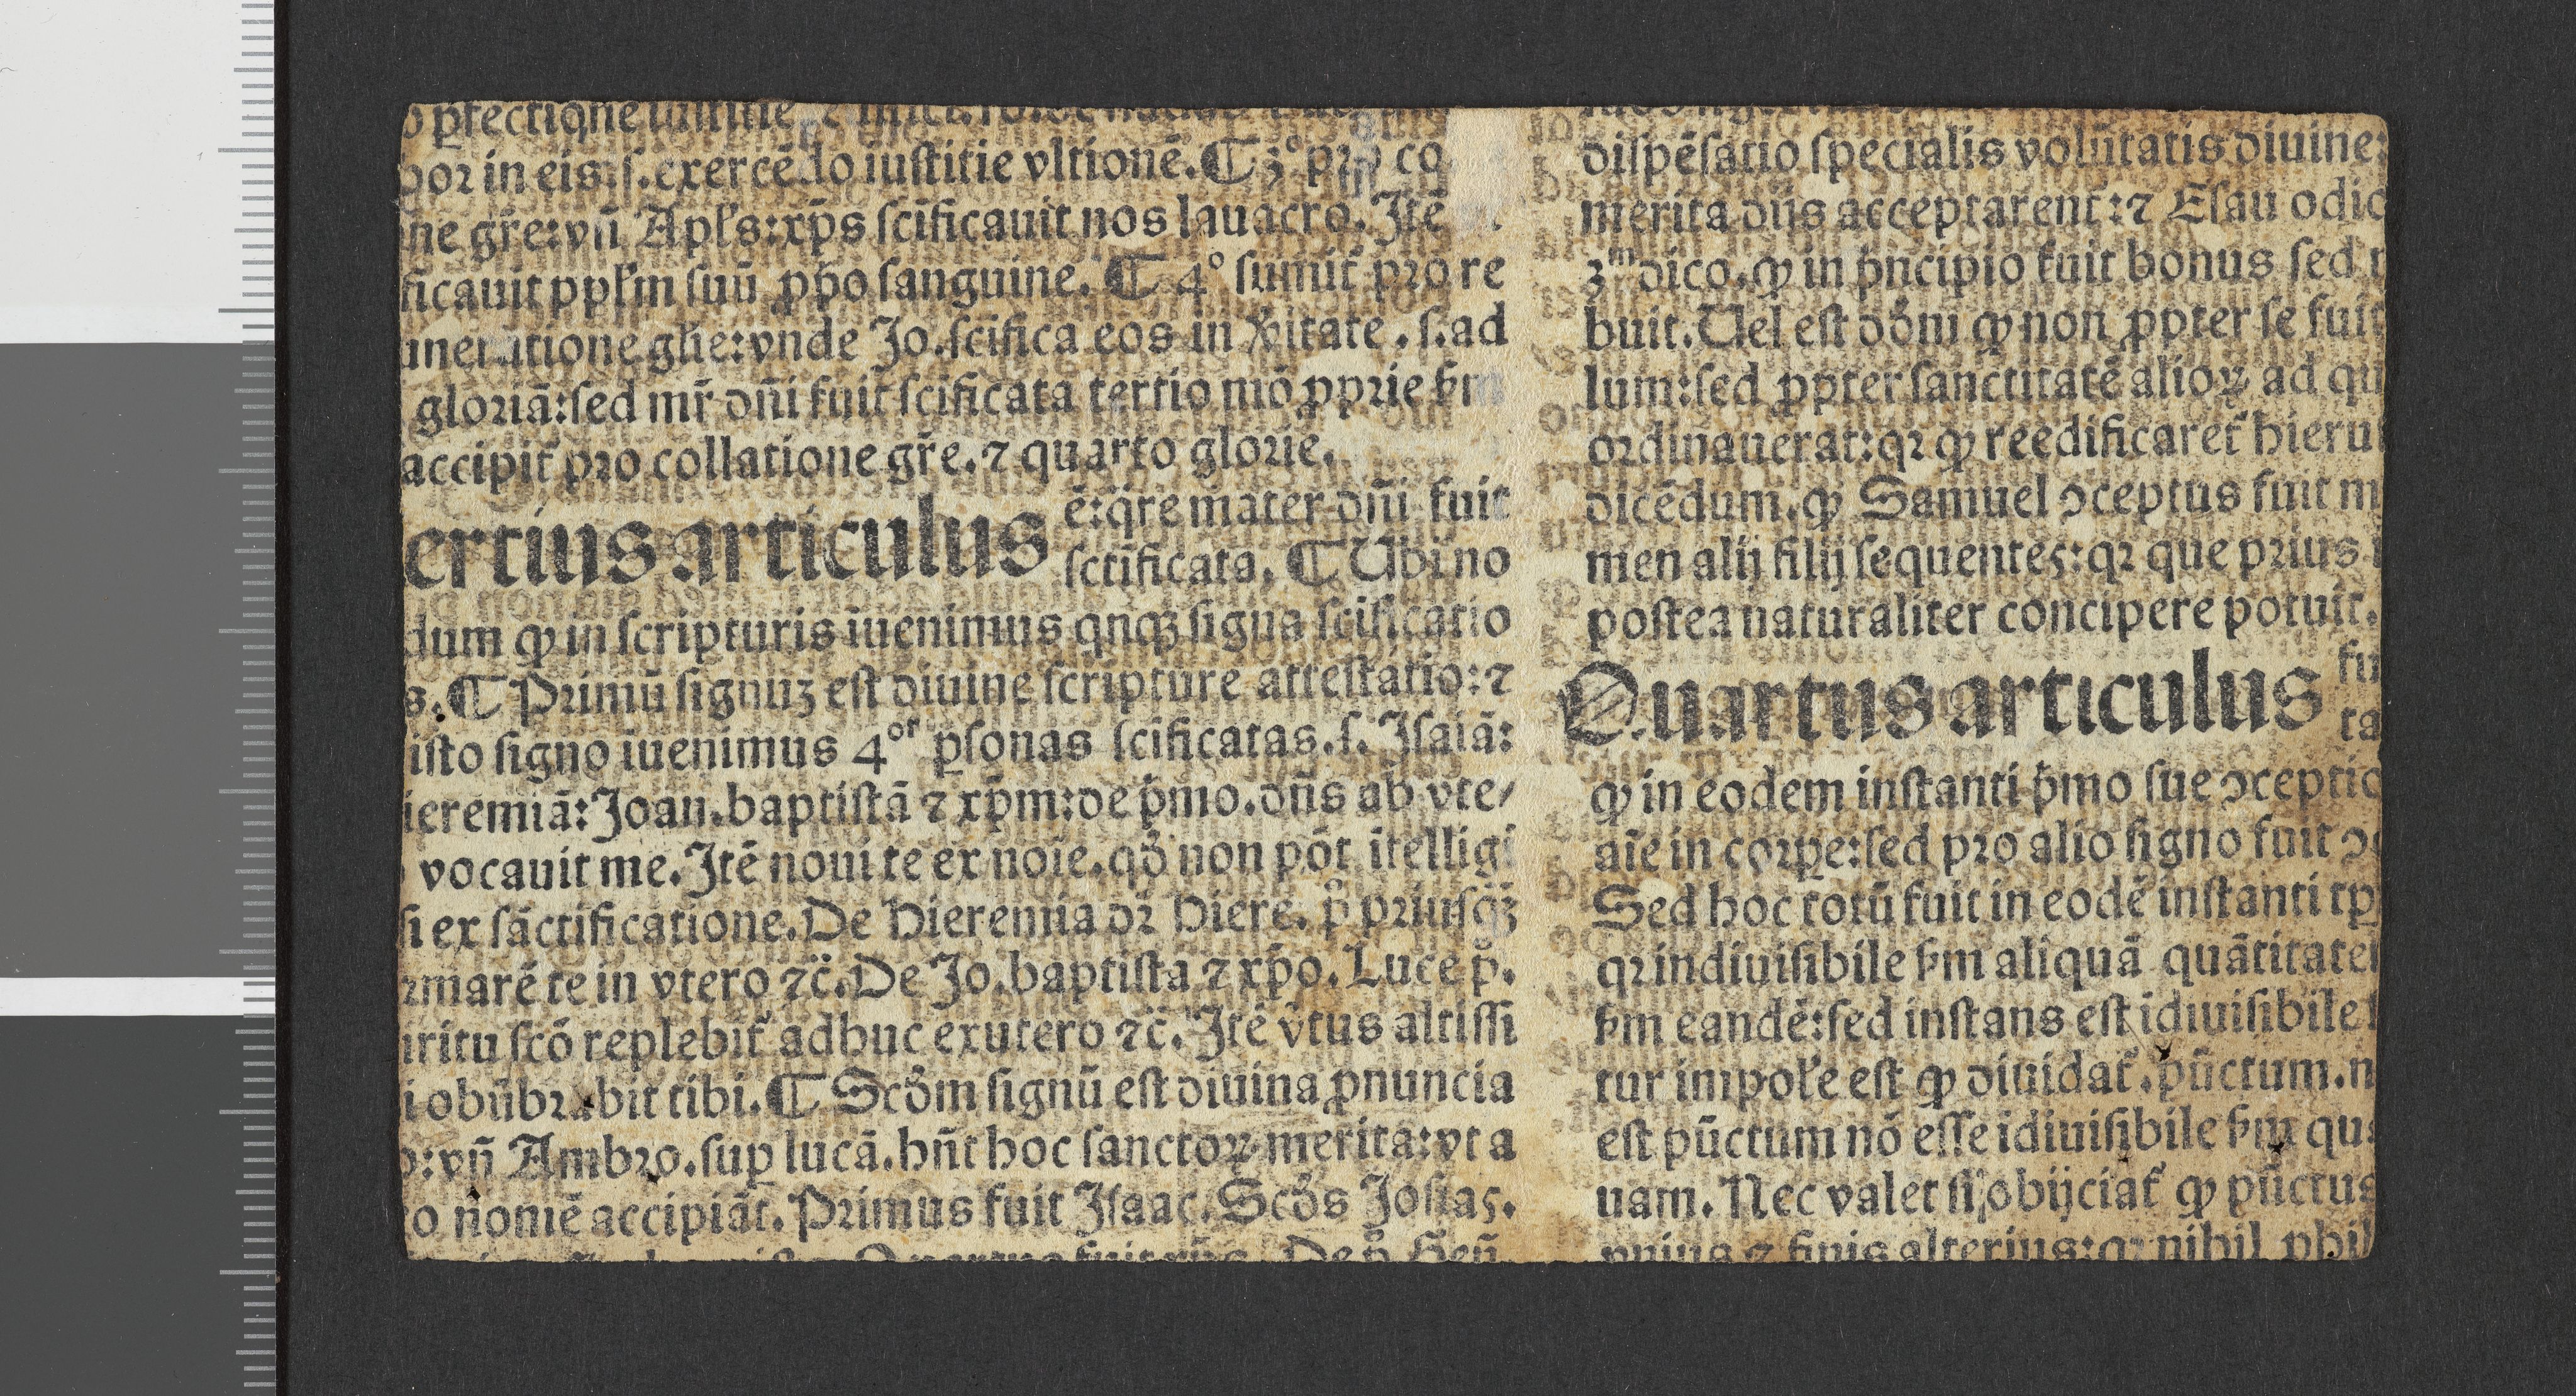 pfectione iustitie
por in eis: ſ. exercēdo iuſtitie vltionē. ¶ 3° pro co
ne gr̄e: vñ Apl's: xp̄s ſcīficauit nos lauacro. Jtē
ficauit ppl'm ſuū ꝓp̄o ſanguine. ¶ 4° ſumit̄ pro re
uneratione gl'ie: vnde Jo. ſcīfica eos in v̓itate. ſ. ad
gloriā: ſed mr̄ dn̄i fuit ſcīficata tertio mō ꝓprie ẜm
accipit̄ pro collatione gr̄e. ⁊ quarto glorie.
ertius articulus
ē: q̄re mater dn̄i fuit
ſctīficata. ¶ Ubi no
dum ꝙ in ſcripturis iuenimus qnqꝫ ſigna ſcīficatio
s. ¶ Primū ſignuꝫ eſt diuine ſcripture atteſtatio: ⁊
iſto ſigno iuenimus 4or ꝑſonas ſcīficatas. ſ. Jſaiā:
ieremiā: Joan. baptiſtā ⁊ xp̄m: de p̄mo. dn̄s ab vte/
vocauit me. Jtē noui te ex noīe. qd̓ non pōt ītelligi
ſi ex ſāctificatione. De Hieremia dr̄ Hiere. p̓ priuſq̄ꝫ
rmarē te in vtero ⁊c̄. De Jo. baptiſta ⁊ xp̄o. Luce p̓.
iritu ſcō replebit̄ adhuc exutero ⁊c̄. Jtē v̓tus altiſſi
i obūbrabit tibi. ¶ Scd̓m ſignū eſt diuina ꝓnuncia
o: vñ Ambro. ſuꝑ lucā. hn̄t hoc ſanctoꝝ merita: vt a
o nomē accipiāt. Primus fuit Jſaac. Scd̓s Joſias.
Quartus fuit xp̄s. De p̓ Geñ.
diſpēſatio ſpecialis volūtatis diuine:
merita dn̄s acceptarent: ⁊ Eſau odio
3m dico. ꝙ in pn̄cipio fuit bonus ſed
buit. Uel eſt dd̓m ꝙ non ꝓpter ſe fuit
lum: ſed ꝓpter ſanctitatē alioꝝ ad qu
ordinauerat: qꝛ ꝙ reedificaret̄ hieru
dicēdum. ꝙ Samuel ↄceptus fuit m
men alij filij ſequentes: qꝛ que prius
poſtea naturaliter concipere potuit.
Quartus articulus
fu
ta
ꝙ in eodem inſtanti p̓mo ſue ↄceptio
aīe in corꝑe: ſed pro alio ſigno fuit ↄ
Sed hoc totū fuit in eodē inſtanti tp
qꝛ indiuiſibile ẜm aliquā quātitatem
ẜm eandē: ſed inſtans eſt idiuiſibile
tur impoſ'e eſt ꝙ diuidat̄. pūctum. n
eſt pūctum nō eſſe idiuiſibile ẜm qu
uam. Nec valet ſi obijciat̄ ꝙ pūctus
vnius ⁊ finis alterius: qꝛ nihil phi